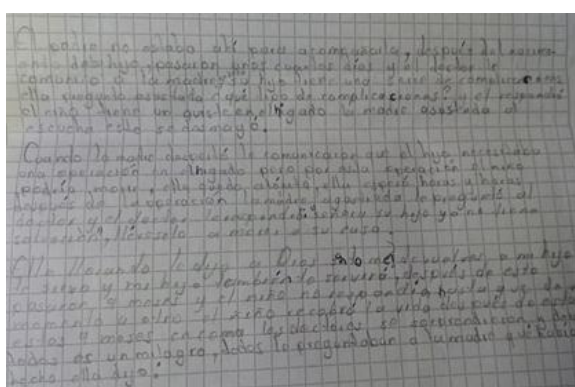 El padre no estaba ahí para acompañarla, después del nacimi-
ento de su hijo, pasaron unos cuantos días y el doctor le
comunicó a la madre: su hijo tiene una serie de complicaciones
ella preguntó asustada ¿qué tipo de complicaciones? y él respondió
el niño tiene un quiste en el hígado la madre asustada al
escuchar esto se desmayó.
Cuando la madre despertó le comunicaron que el hijo necesitaba
una operación en el hígado pero por esta operación el niño
podría morir, ella quedó atónita, ella esperó horas y horas
después de la operación la madre agoviada le preguntó al
doctor y el doctor le respondió: señora su hijo ya no tiene
salvación, lléveselo a morir a su casa.
Ella llorando le dijo a Dios si me devuelves a mi hijo
te sirvo y mi hijo también te servirá, después de esto
pasaron 9 meses y el niño no respondía hasta que de un
momento a otro el niño recobró la vida después de estar
estos 9 meses en coma los doctores se sorprendieron y
todos es un milagro, todos le preguntaban a la madre qué había
hecho ella dijo: